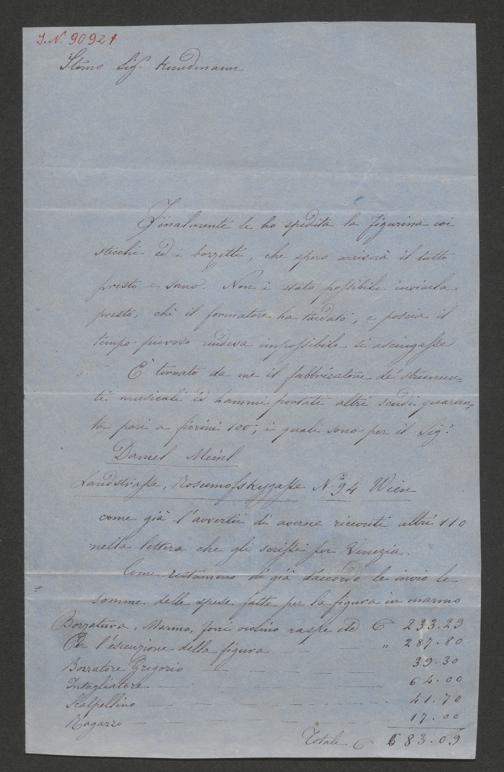 I.N. 90921
Stimo Sig.r Kundmann
Finalmente le ho spedita la figurina coi
stecchi ed i bozzetti, che spero arriverà il tutto
presto e sano. Non è stato possibile inviarla
presto, chè il formatore ha tardato, e poscia il
tempo piovoso rendeva impossibile si asciugasse
È tornato da me il fabbricatore de' strumen-
ti musicali ed hammi portate altri scudi quaran-
ta pari a fiorini 100, i quali sono per il Sig.r
Daniel Meinl
Landstraße, Rosumofskygaße N.o 94 Wien
come già l'avvertii di averne ricevuti altri 110
nella lettera che gli scrissi per Venezia.
Come restammo di già d'accordo le invio le
somme delle spese fatte per la figura in marmo
Bozzatura, Marmo, ferri raspe etc £ 233.29
Per l'esecuzione della figura " 287.80
Bozzatore Gregorio 39.30
Intagliatore 64.00
Scalpellino 41.70
Ragazzo 17.00
Totale £ 683.09